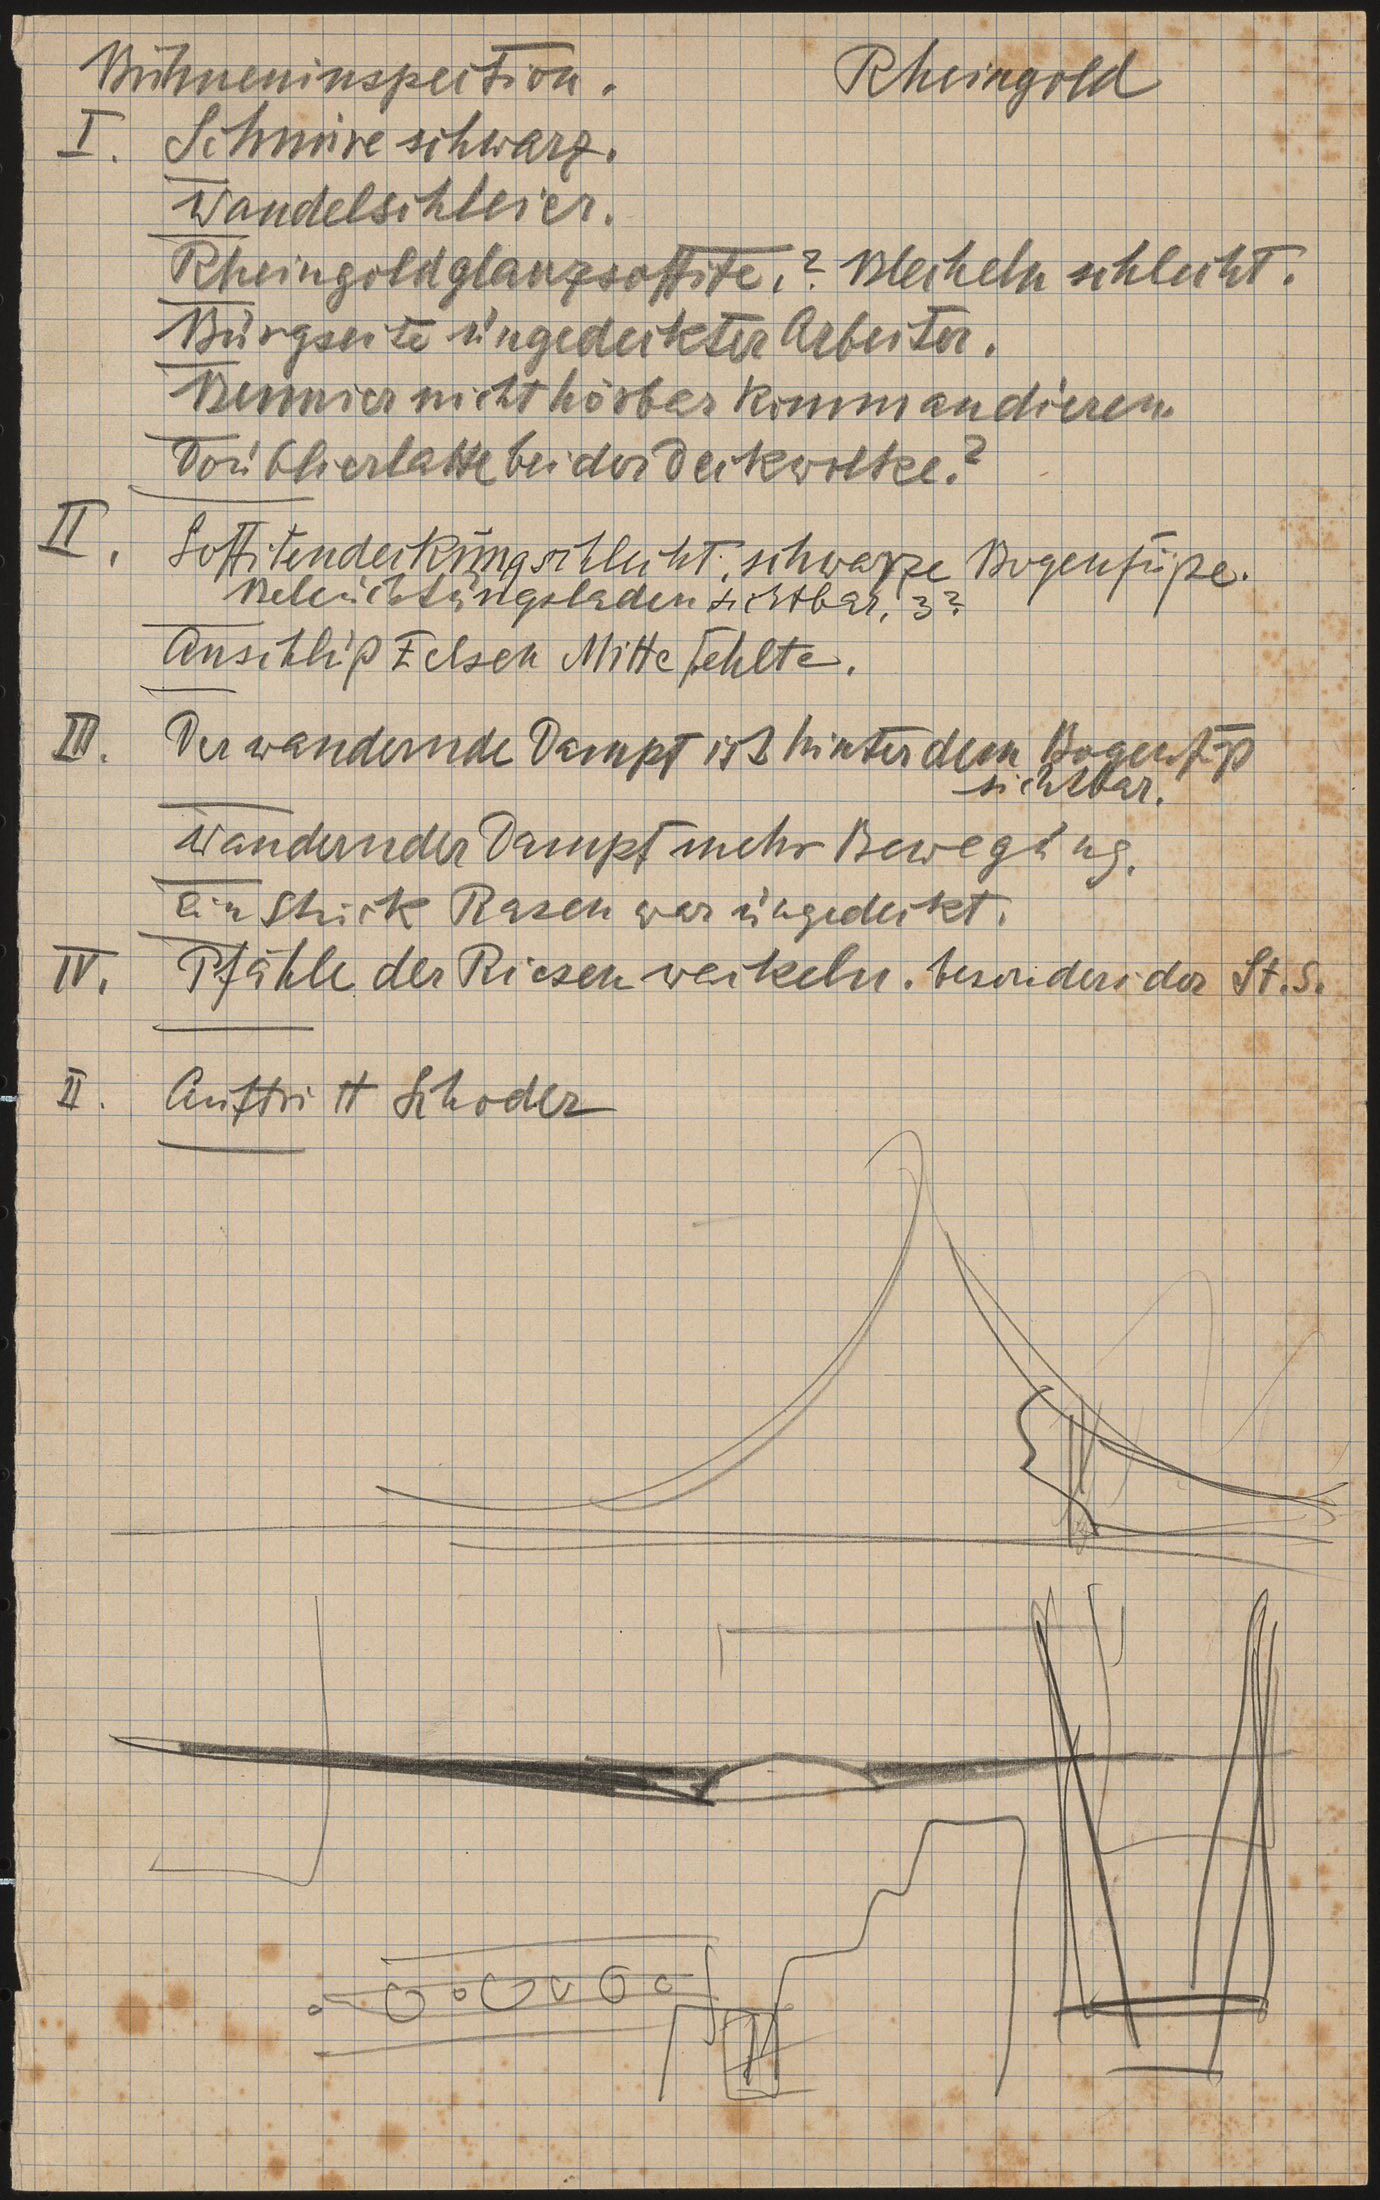 Bühneninspection. Rheingold
I. Schnüre schwarz.
Wandelschleier.
Rheingoldglanzsoffite.? Blecheln schlecht.
Burgseite ungedeckter Arbeiter.
Bennier nicht hörbar kommandieren
Doublierlatte bei der Deckwolke.?
II. Soffitendeckung schlecht. schwarze Bogenfüße.
Beleuchtungsladen sichtbar. 3?
Anschluß Felsen Mitte fehlte.
III. Der wandernde Dampf ist hinter dem Bogenfuß
sichtbar.
Wandernder Dampf mehr Bewegung.
Ein Stück Rasen war ungedeckt.
IV. Pfähle der Riesen wackeln. besonders der St.S.
II. Auftritt Schoder